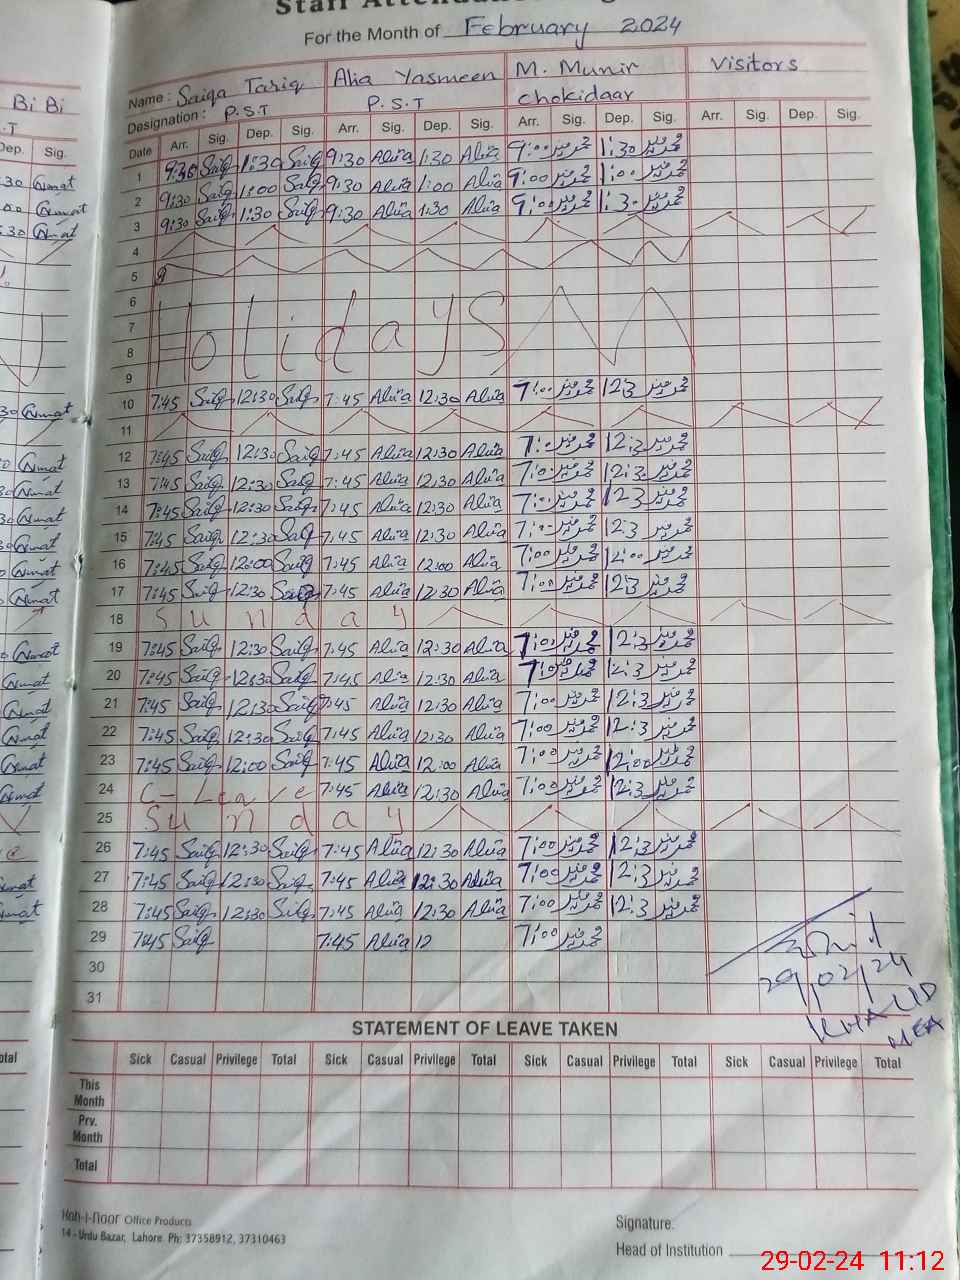 Staff Attendance
For the Month of February 2024
Bi Bi
Name: Saiqa Tariq Alia Yasmeen M. Munir Visitors
Designation: P.S.T P.S.T chokidaar
Date Arr. Sig. Dep. Sig. Arr. Sig. Dep. Sig. Arr. Sig. Dep. Sig. Arr. Sig. Dep. Sig.
1 9:30 Saiq 1:30 Saiq 9:30 Alia 1:30 Alia 9:00 محمد منیر 1:30 محمد منیر
2 9:30 Saiq 1:00 Saiq 9:30 Alia 1:00 Alia 9:00 محمد منیر 1:00 محمد منیر
3 9:30 Saiq 1:30 Saiq 9:30 Alia 1:30 Alia 9:00 محمد منیر 1:30 محمد منیر
4
5
6
7 Holidays
8
9
10 7:45 Saiq 12:30 Saiq 7:45 Alia 12:30 Alia 7:00 محمد منیر 12:3 محمد منیر
11
12 7:45 Saiq 12:30 Saiq 7:45 Alia 12:30 Alia 7:0 محمد منیر 12:3 محمد منیر
13 7:45 Saiq 12:30 Saiq 7:45 Alia 12:30 Alia 7:0 محمد منیر 12:3 محمد منیر
14 7:45 Saiq 12:30 Saiq 7:45 Alia 12:30 Alia 7:0 محمد منیر 12:3 محمد منیر
15 7:45 Saiq 12:30 Saiq 7:45 Alia 12:30 Alia 7:0 محمد منیر 12:3 محمد منیر
16 7:45 Saiq 12:00 Saiq 7:45 Alia 12:00 Alia 7:00 محمد منیر 12:00 محمد منیر
17 7:45 Saiq 12:30 Saiq 7:45 Alia 12:30 Alia 7:00 محمد منیر 12:3 محمد منیر
18 Sunday
19 7:45 Saiq 12:30 Saiq 7:45 Alia 12:30 Alia 7:0 محمد منیر 12:3 محمد منیر
20 7:45 Saiq 12:30 Saiq 7:45 Alia 12:30 Alia 7:0 محمد منیر 12:3 محمد منیر
21 7:45 Saiq 12:30 Saiq 7:45 Alia 12:30 Alia 7:00 محمد منیر 12:3 محمد منیر
22 7:45 Saiq 12:30 Saiq 7:45 Alia 12:30 Alia 7:00 محمد منیر 12:3 محمد منیر
23 7:45 Saiq 12:00 Saiq 7:45 Alia 12:00 Alia 7:00 محمد منیر 12:00 محمد منیر
24 C-Leave 7:45 Alia 12:30 Alia 7:00 محمد منیر 12:3 محمد منیر
25 Sunday
26 7:45 Saiq 12:30 Saiq 7:45 Alia 12:30 Alia 7:00 محمد منیر 12:3 محمد منیر
27 7:45 Saiq 12:30 Saiq 7:45 Alia 12:30 Alia 7:00 محمد منیر 12:3 محمد منیر
28 7:45 Saiq 12:30 Saiq 7:45 Alia 12:30 Alia 7:00 محمد منیر 12:3 محمد منیر
29 7:45 Saiq 7:45 Alia 12 7:00 محمد منیر
30
31
29/02/24
KHALID
MEA
STATEMENT OF LEAVE TAKEN
Sick Casual Privilege Total Sick Casual Privilege Total Sick Casual Privilege Total Sick Casual Privilege Total
This Month
Prv. Month
Total
Koh-i-noor Office Products
14 - Urdu Bazar, Lahore. Ph: 37358912, 37310463
Signature.
Head of Institution
29-02-24 11:12